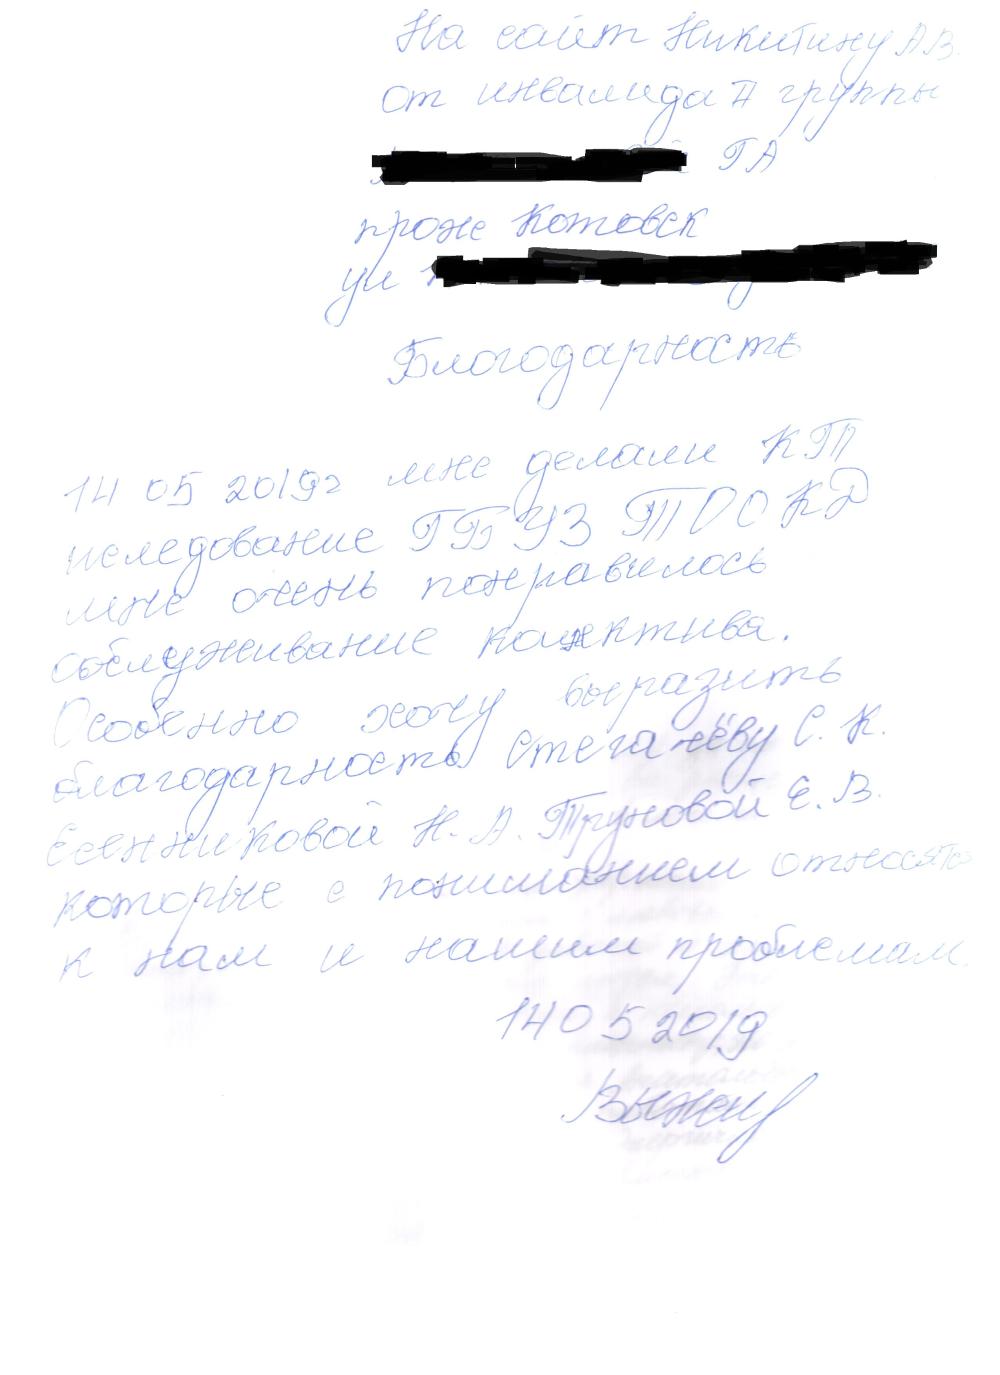 На сайт Никитину А.В.
от инвалида II группы
ГА
прож Котовск
ул
Благодарность
14 05 2019г мне делали КТ
иследование ГБУЗ ТООКД
мне очень понравилось
обслуживание колектива.
Особенно хочу выразить
благодарность Стегачёву С. К.
Есенниковой Н. А. Труновой Е. В.
которые с пониманием относятся
к нам и нашим проблемам.
14 05 2019